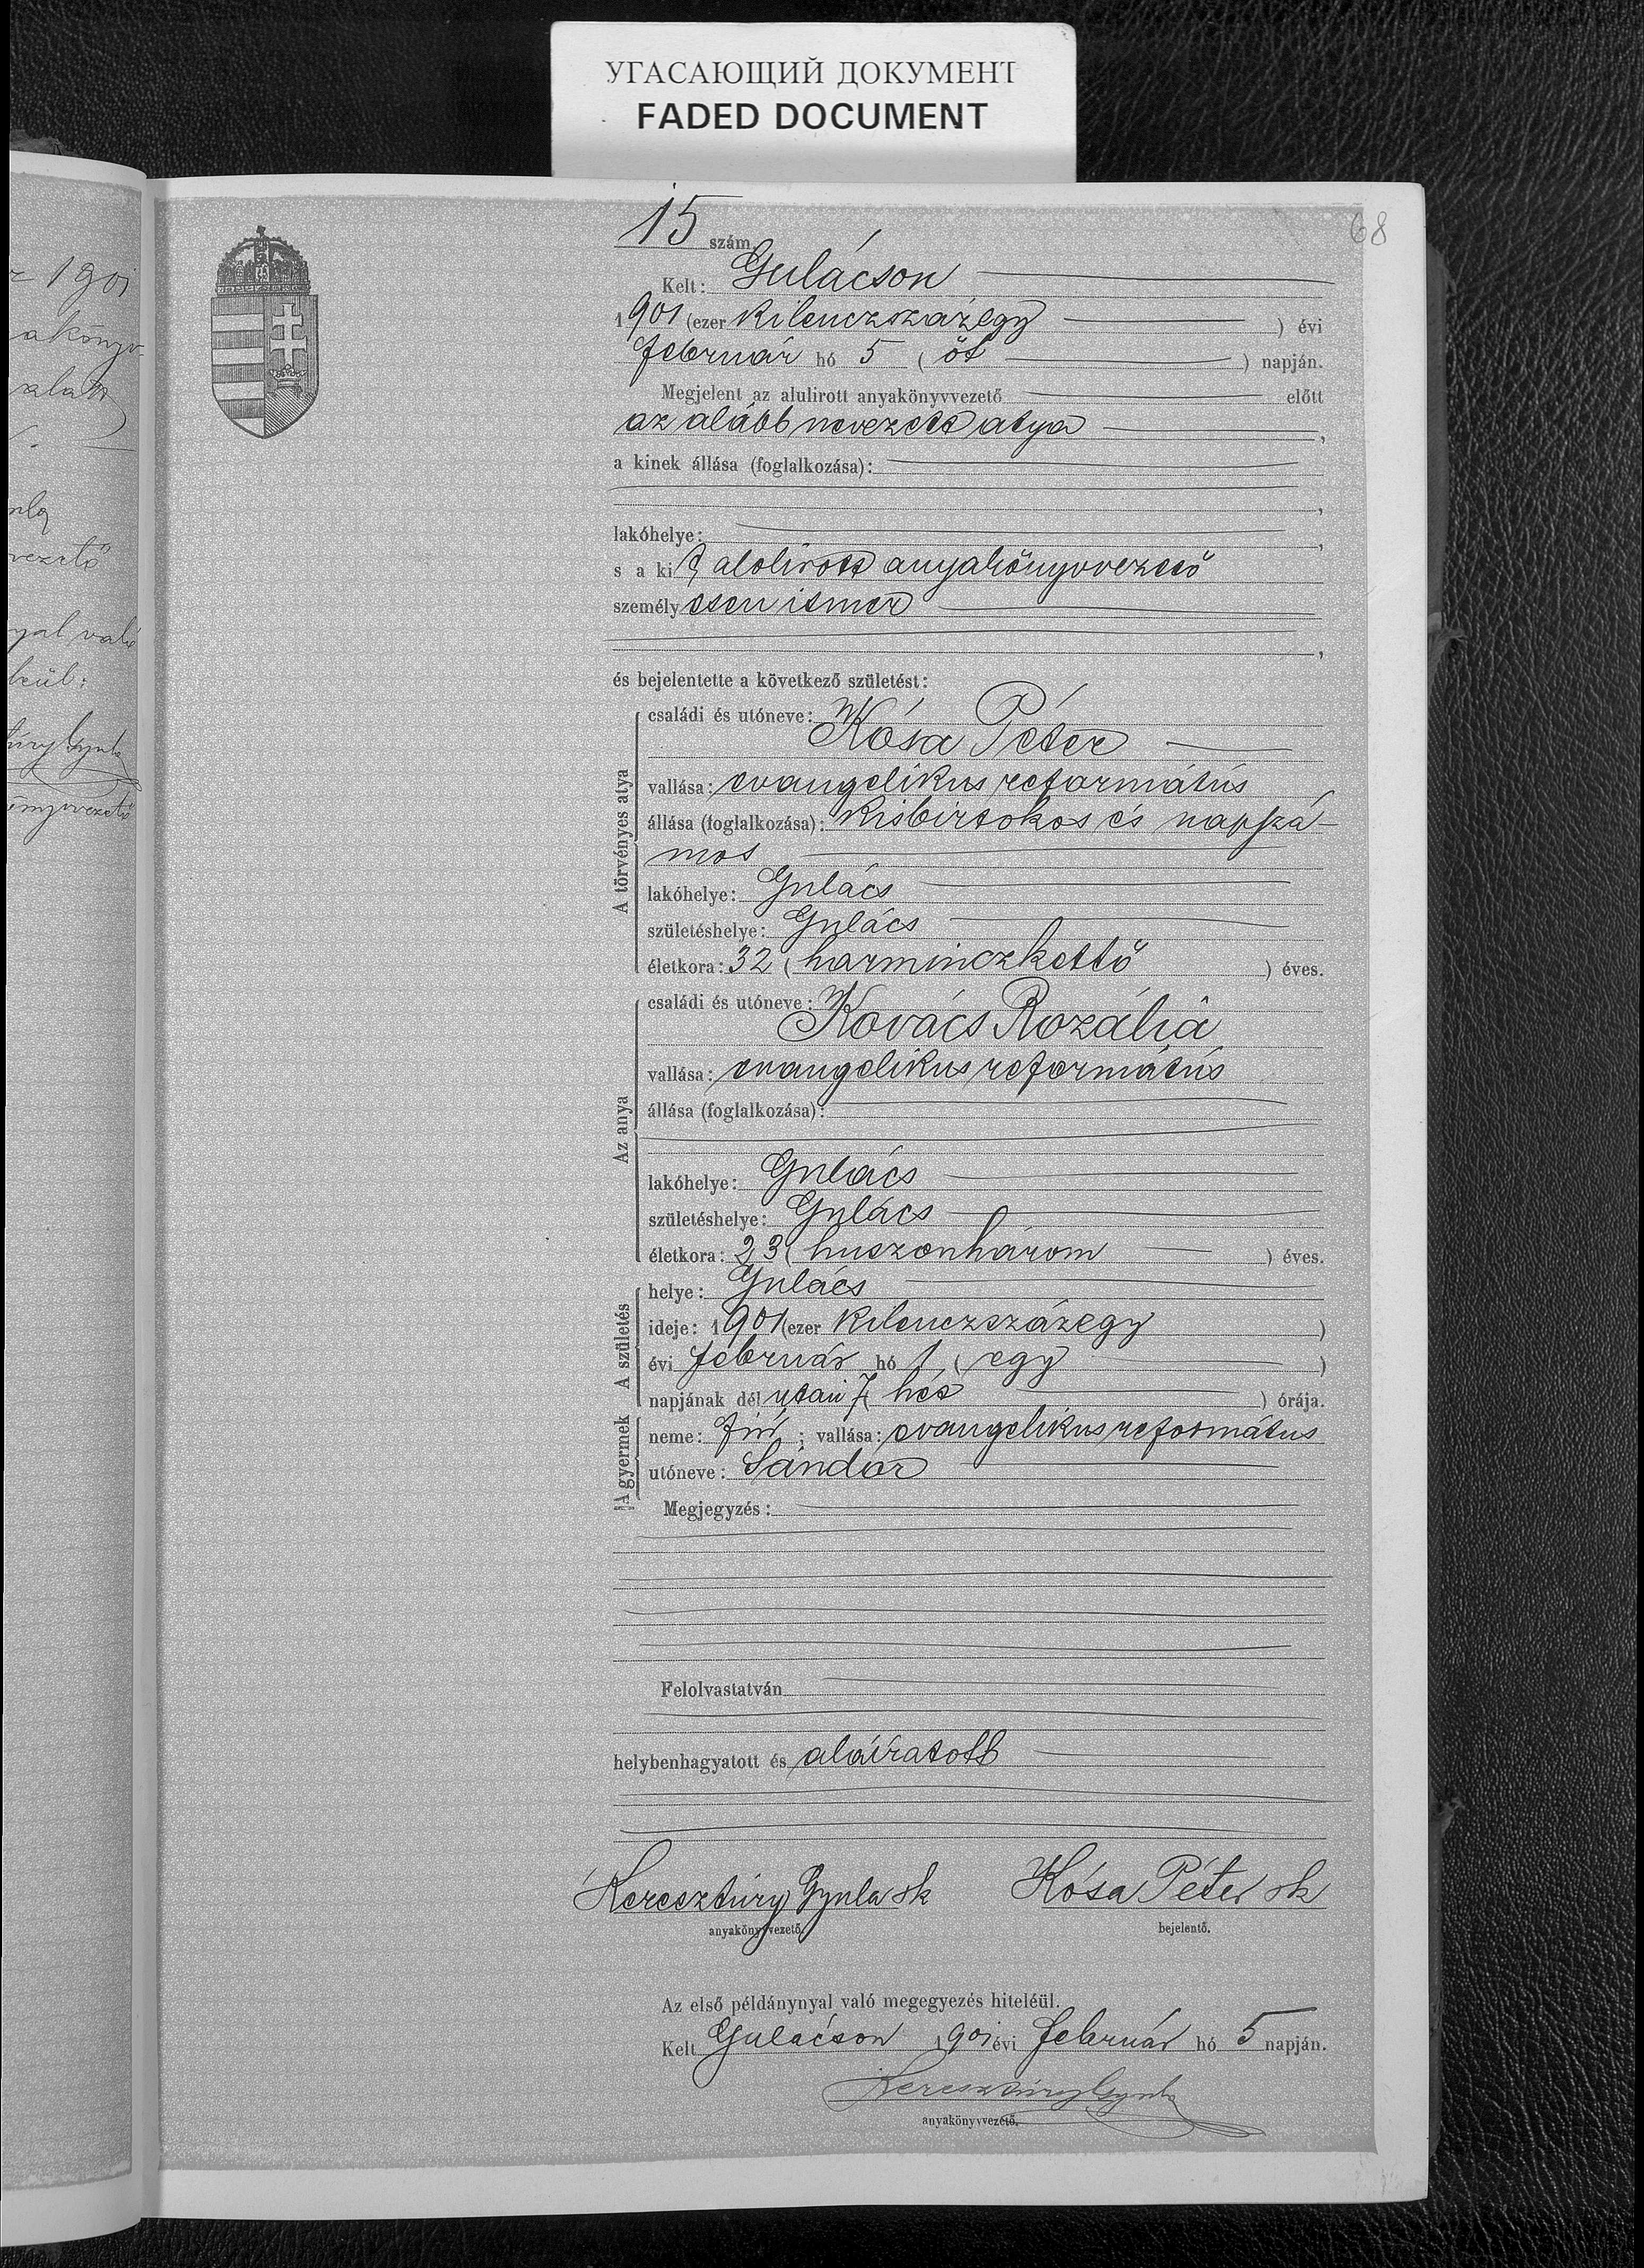 УГАСАЮЩИЙ ДОКУМЕНТ
FADED DOCUMENT
68
15 szám.
Kelt: Gulácson
1901 (ezer kilenczszázegy ) évi
február hó 5 (öt ) napján.
Megjelent az alulirott anyakönyvvezető előtt
az alább nevezett atya ,
a kinek állása (foglalkozása):
,
lakóhelye: ,
s a ki t alolirott anyakönyvvezető
személyesen ismer
,
és bejelentette a következő születést:
A törvényes atya
családi és utóneve:
Kósa Péter
vallása: evangelikus református
állása (foglalkozása): kisbirtokos és napszá-
mos
lakóhelye: Gulács
születéshelye: Gulács
életkora: 32 (harminczkettő ) éves.
Az anya
családi és utóneve:
Kovács Rozália
vallása: evangelikus református
állása (foglalkozása):
lakóhelye: Gulács
születéshelye: Gulács
életkora: 23 (huszonhárom ) éves.
A születés
helye: Gulács
ideje: 1901 (ezer kilenczszázegy )
évi február hó 1 (egy )
napjának dél utáni 7 (hét ) órája.
A gyermek
neme: fiú ; vallása: evangelikus református
utóneve: Sándor
Megjegyzés:
Felolvastatván
helybenhagyatott és aláiratott
Keresztúry Gyula sk Kósa Péter sk
anyakönyvvezető. bejelentő.
Az első példánynyal való megegyezés hiteléül.
Kelt Gulácson 1901 évi február hó 5 napján.
Keresztúry Gyula
anyakönyvvezető.
1901
akönyv-
alatt
vezető
nyal való
leül:
túry Gyula
önyvvezető